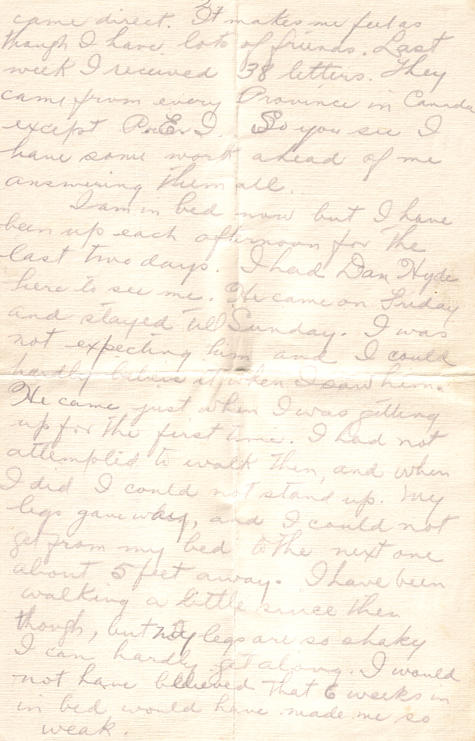 came direct. It makes me feel as
though I have lots of friends. Last
week I received 38 letters. They
came from every Province in Canada
except P.E.I. So you see I
have some work ahead of me
answering them all.
I am in bed now but I have
been up each afternoon for the
last two days. I had Dan Hyde
here to see me. He came on Friday
and stayed till Sunday. I was
not expecting him and I could
hardly believe it when I saw him.
He came just when I was getting
up for the first time. I had not
attempted to walk then, and when
I did I could not stand up. My
legs gave way, and I could not
get from my bed to the next one
about 5 feet away. I have been
walking a little since then
though, but my legs are so shaky
I can hardly get along. I would
not have believed that 6 weeks in
in bed would have made me so
weak.